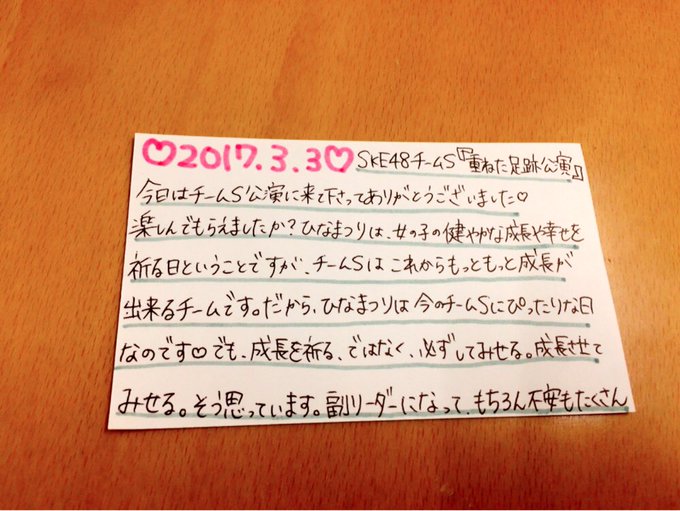 ♡2017.3.3♡ SKE48チームS『重ねた足跡公演』
今日はチームS公演に来て下さってありがとうございました♡
楽しんでもらえましたか?ひなまつりは、女の子の健やかな成長や幸せを
祈る日ということですが、チームSはこれからもっともっと成長が
出来るチームです。だから、ひなまつりは今のチームSにぴったりな日
なのです♡でも、成長を祈る、ではなく、必ずしてみせる。成長させて
みせる。そう思っています。副リーダーになって、もちろん不安もたくさん